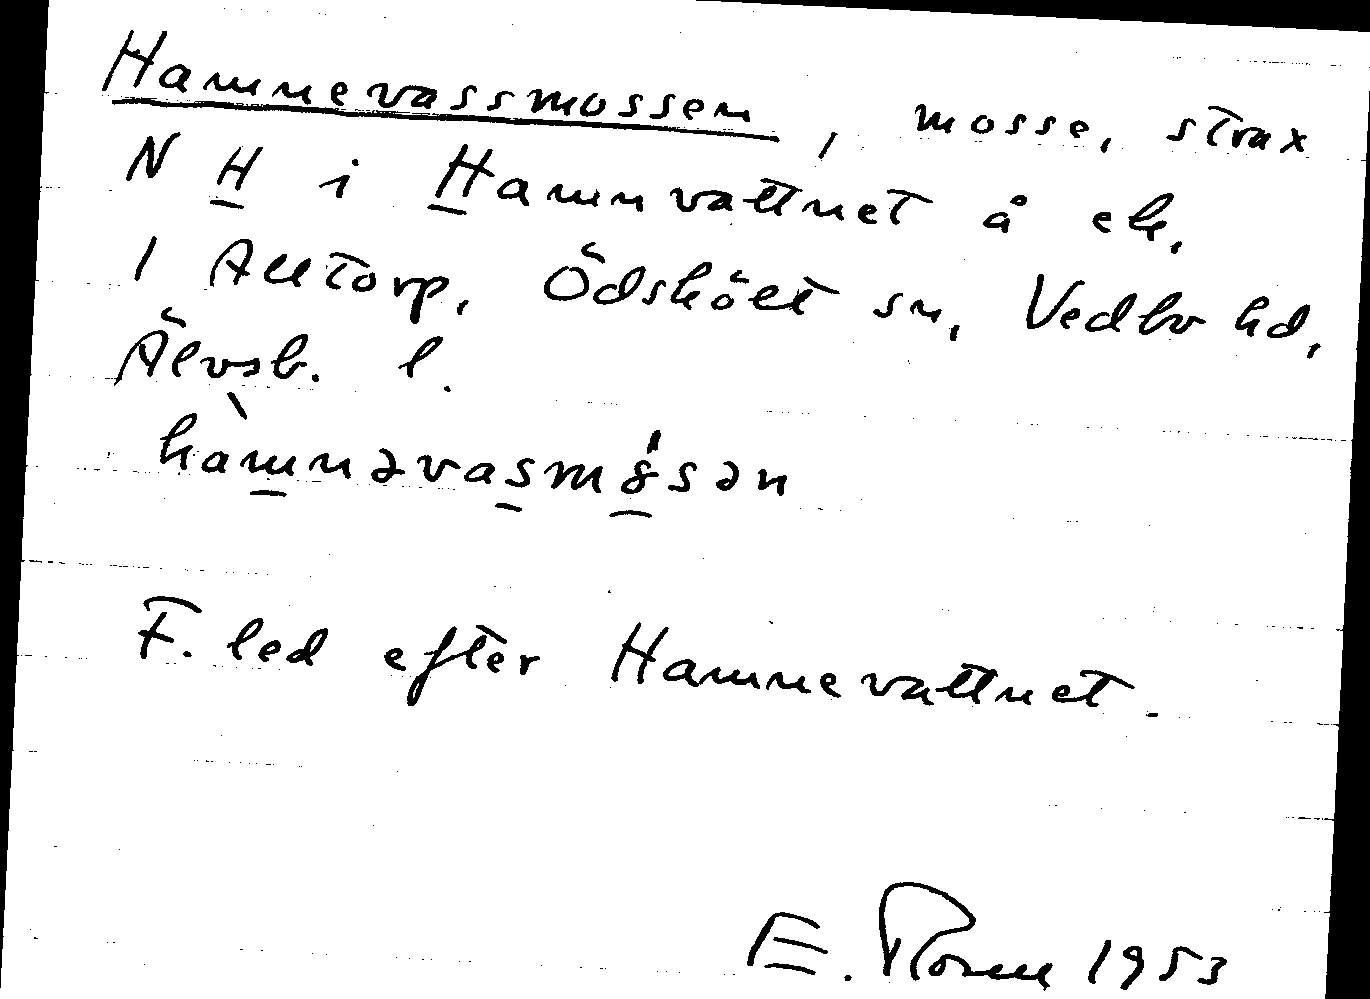 Hamnevassmossen, mosse, strax
N H i Hamnvattnet å ek.
1 Alltorp, Ödskölt sn, Vedbo hd,
Älvsb. l.
hàmnəvasmósən
F. led efter Hamnevattnet.
E. 1953